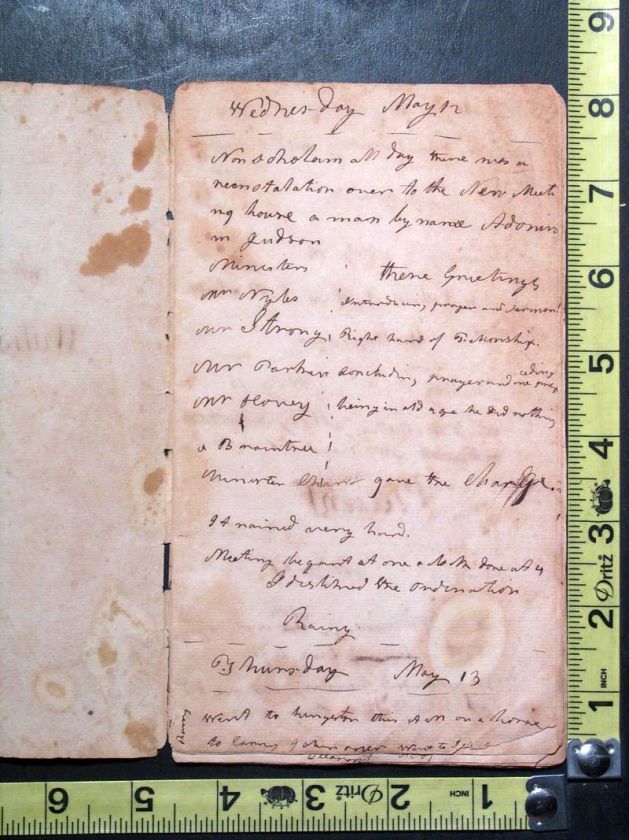 Wednes-day May 12
No scholars all day there was a
reinstalation over to the New Meeti
ng house a man by name Adonir
m Judson
Ministers there Greetings
Mr Nyles introducing prayer and sermon
Mr Strong Right hand of Fellowship.
Mr Parker concluding prayer and
Mr Hovey being in old age he did nothing
a Braintree
Minister gave the Charge
It rained very hard.
Meeting begant at one a clock done at 4
I disliked the ordination
Rainy
Thurs-day May 13
Rainy
went to hingston this AM on a horse
to carry John over went to
9
8
7
6
5
4
3
Dritz
2
INCH
1
6
5
4
3
Dritz
2
INCH
1